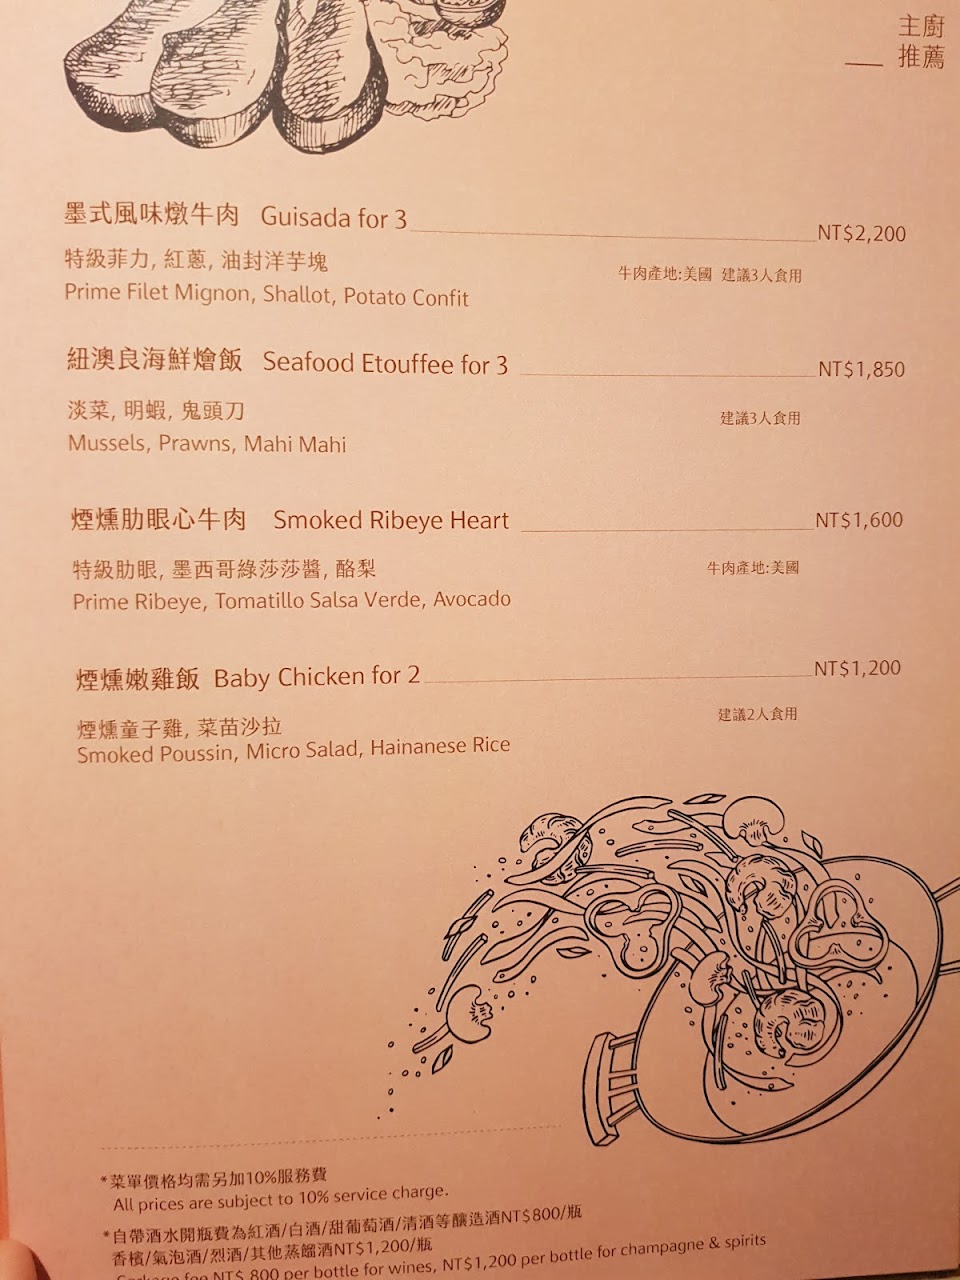 主廚
推薦
墨式風味燉牛肉 Guisada for 3 NT$2,200
特級菲力, 紅蔥, 油封洋芋塊 牛肉產地:美國 建議3人食用
Prime Filet Mignon, Shallot, Potato Confit
紐澳良海鮮燴飯 Seafood Etouffee for 3 NT$1,850
淡菜, 明蝦, 鬼頭刀 建議3人食用
Mussels, Prawns, Mahi Mahi
煙燻肋眼心牛肉 Smoked Ribeye Heart NT$1,600
特級肋眼, 墨西哥綠莎莎醬, 酪梨 牛肉產地:美國
Prime Ribeye, Tomatillo Salsa Verde, Avocado
煙燻嫩雞飯 Baby Chicken for 2 NT$1,200
煙燻童子雞, 菜苗沙拉 建議2人食用
Smoked Poussin, Micro Salad, Hainanese Rice
*菜單價格均需另加10%服務費
All prices are subject to 10% service charge.
*自帶酒水開瓶費為紅酒/白酒/甜葡萄酒/清酒等釀造酒NT$800/瓶
香檳/氣泡酒/烈酒/其他蒸餾酒NT$1,200/瓶
Corkage fee NT$ 800 per bottle for wines, NT$1,200 per bottle for champagne & spirits